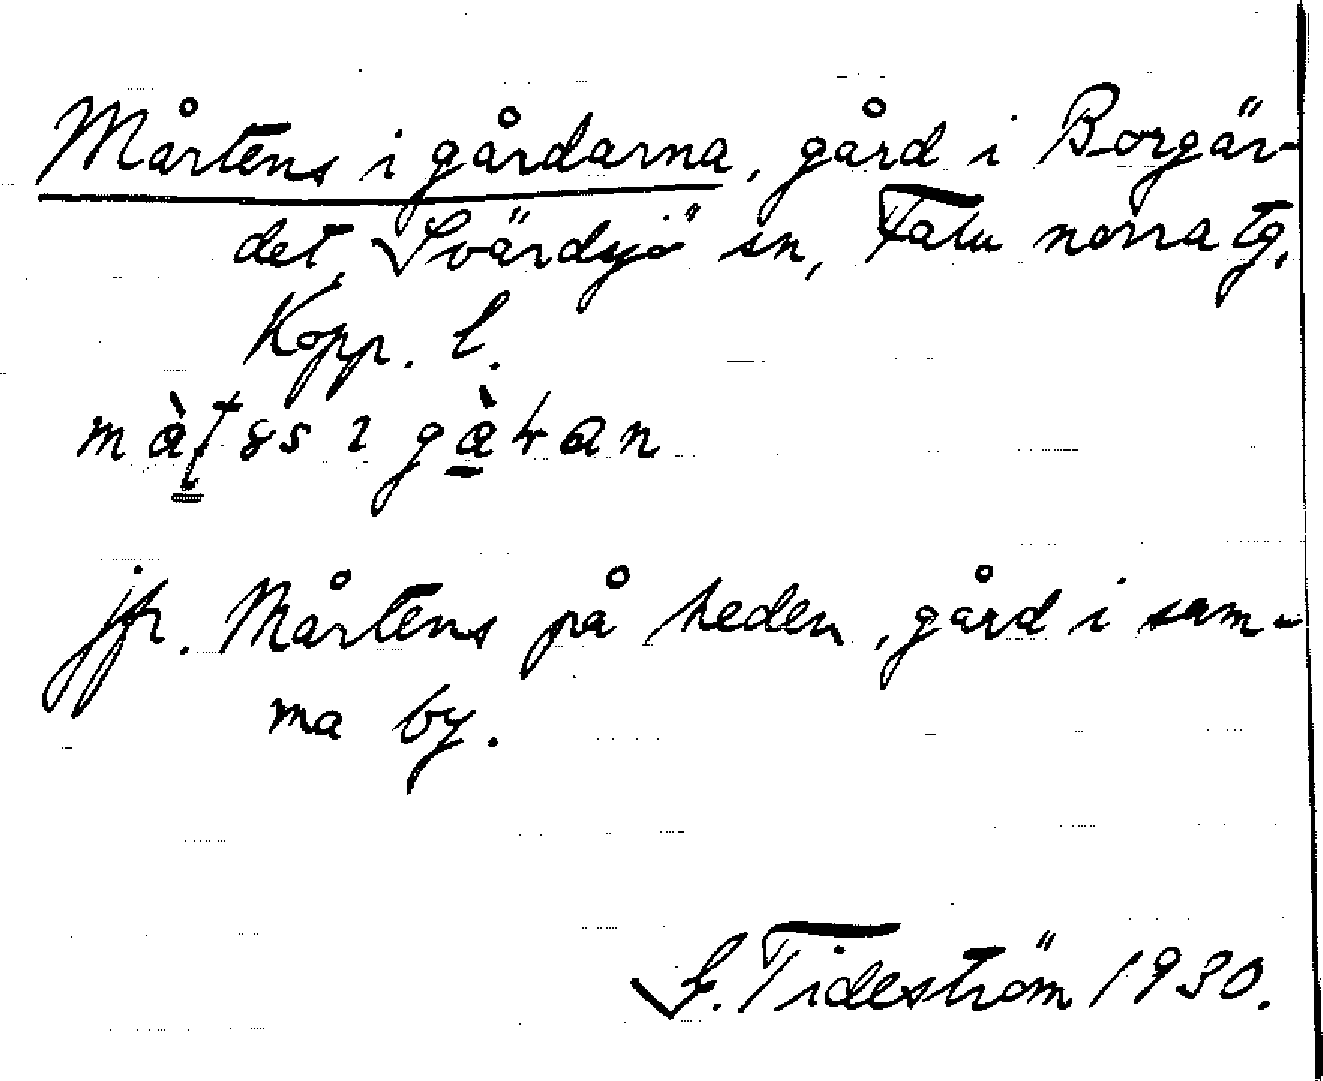 Mårtens i gårdarna, gård i Borgär-
det, Svärdsjö sn, Falu norra tg,
Kopp. l.
jfr. Mårtens på heden, gård i sam-
ma by.
Tideström 1930.